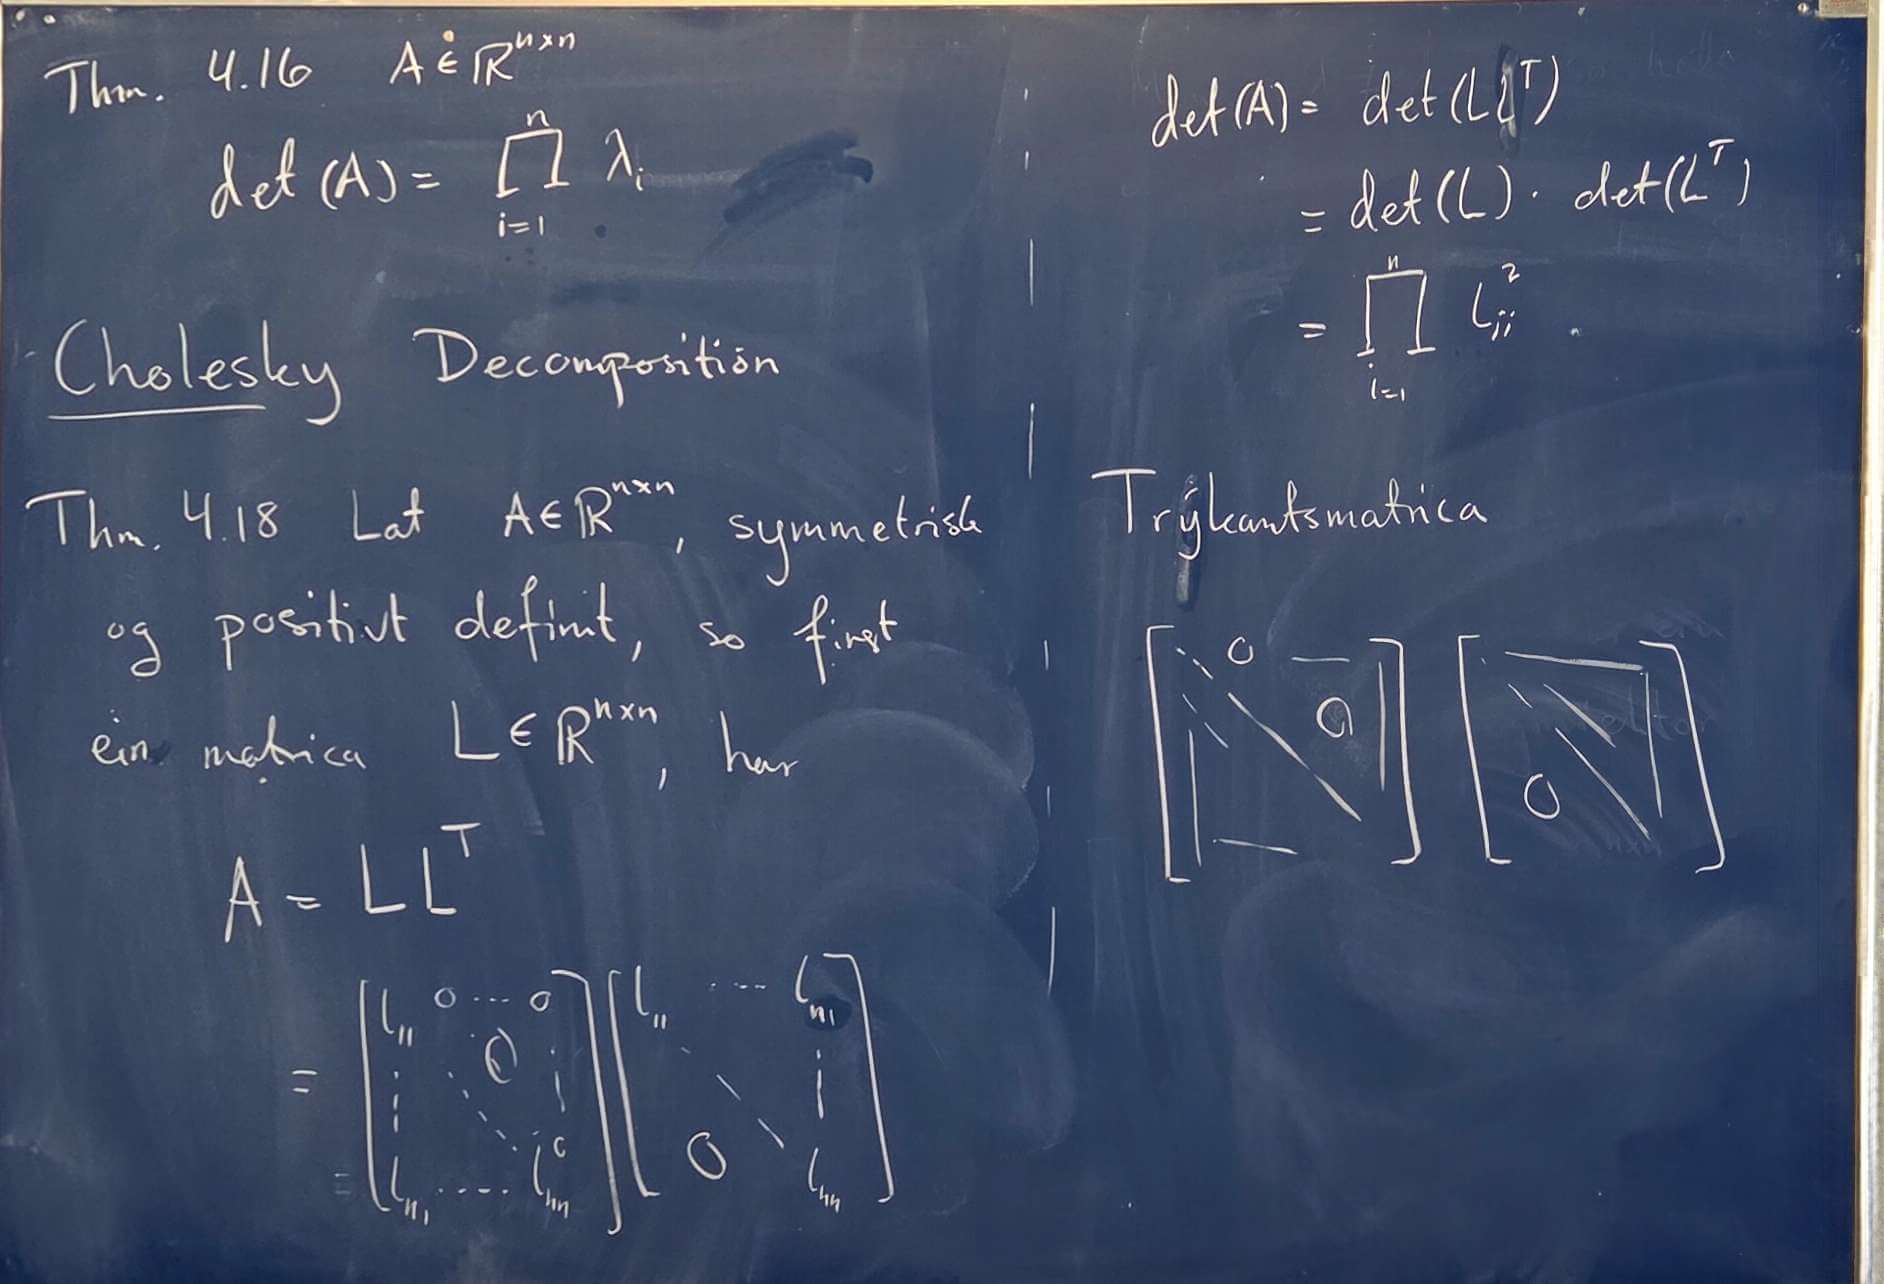 Thm. 4.16 A ∈ ℝⁿˣⁿ
det(A) = ∏ᵢ₌₁ⁿ λᵢ
Cholesky Decomposition
Thm. 4.18 Lat A∈ℝⁿˣⁿ, symmetrisk
og positivt definit, so finst
ein matrica L∈ℝⁿˣⁿ, har
A = LLᵀ
= [l₁₁ 0 ... 0; ⋮ 0 ⋮; lₙ₁ ..... lₙₙ] [l₁₁ ... lₙ₁; ⋮; 0 lₙₙ]
det(A) = det(LLᵀ)
= det(L) · det(Lᵀ)
= ∏ᵢ₌₁ⁿ lᵢᵢ²
Trýkantsmatrica
[0 0] [0]